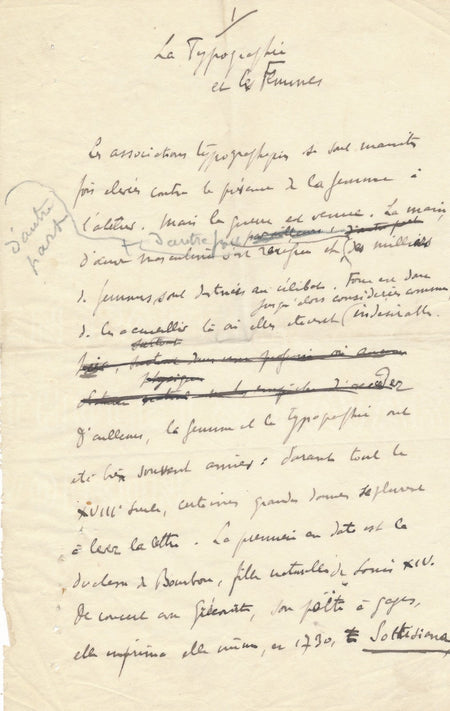 1
La Typographie
et les Femmes
Les associations typographiques se sont maintes
fois élevées contre la présence de la femme à
l'atelier. Mais la guerre est venue. La main
D'autre
part
d'œuvre masculine s'est raréfiée et des milliers
de femmes, sont destinées au célibat. Force est donc
jusqu'alors considérées comme
de les accueillir là où elles étaient indésirables.
surtout
physique
D'ailleurs, la femme et la typographie ont
été très souvent amies : durant tout le
XVIIIe siècle, certaines grandes dames se plurent
à lever la lettre. La première en date est la
duchesse de Bourbon, fille naturelle de Louis XIV.
De concert avec Grécourt, son poète à gages,
elle imprima elle même, en 1730,